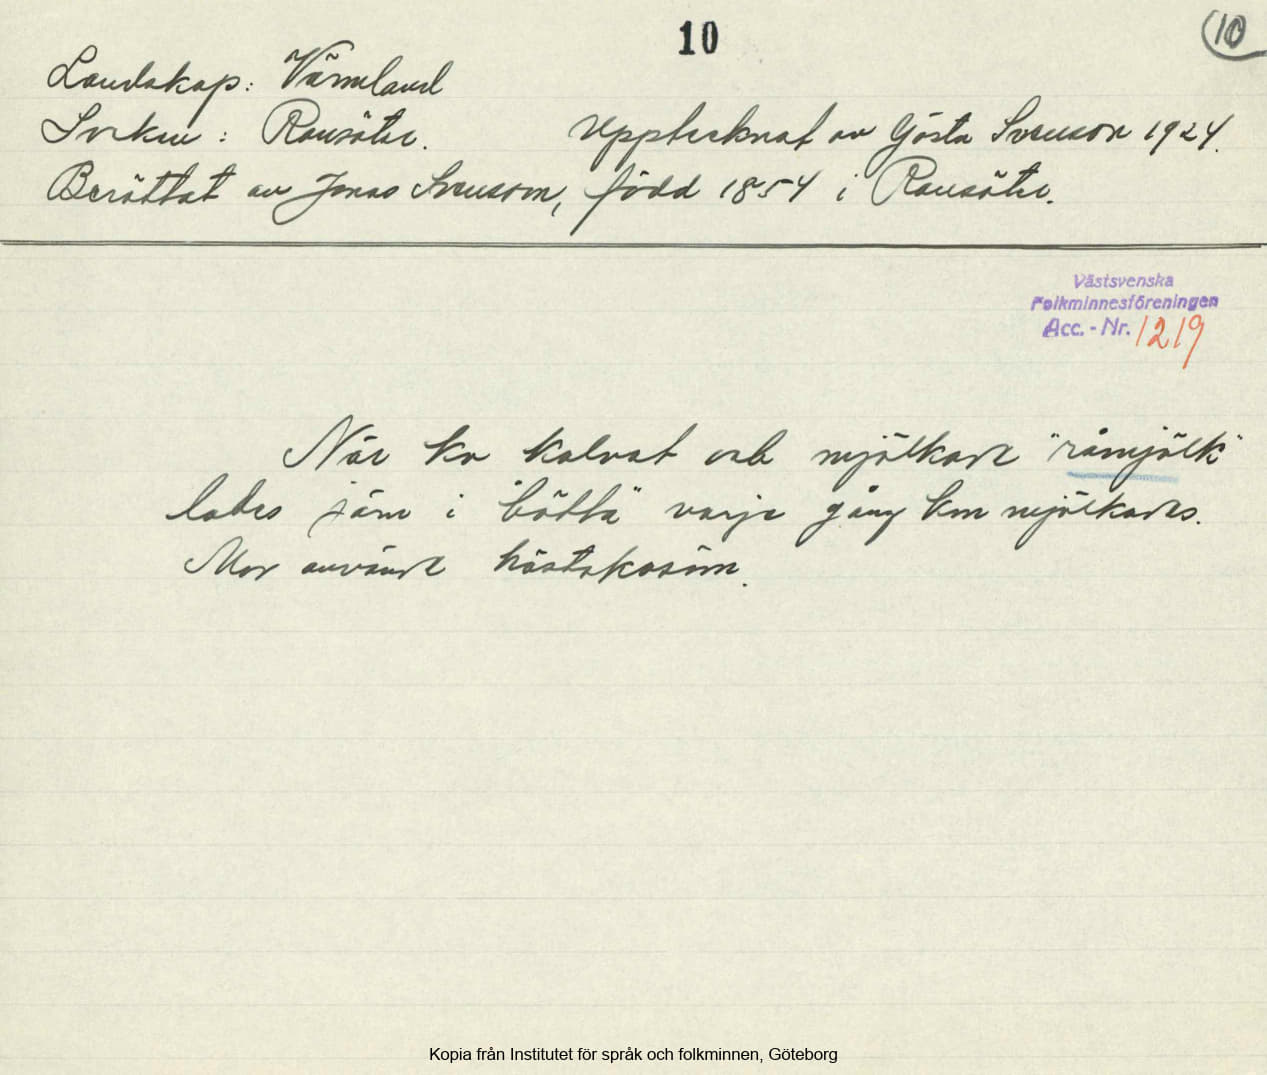 10
(10
Landskap: Värmland
Socken: Ransäter.
Upptecknat av Gösta Svenson 1924.
Berättat av Jonas Svensson, född 1854 i Ransäter.
Västsvenska
Folkminnesföreningen
Acc. - Nr. 1219
När ko kalvat och mjölkade "råmjölk"
lades järn i "böttä" varje gång kon mjölkades.
Mor använde hästskosöm.
Kopia från Institutet för språk och folkminnen, Göteborg